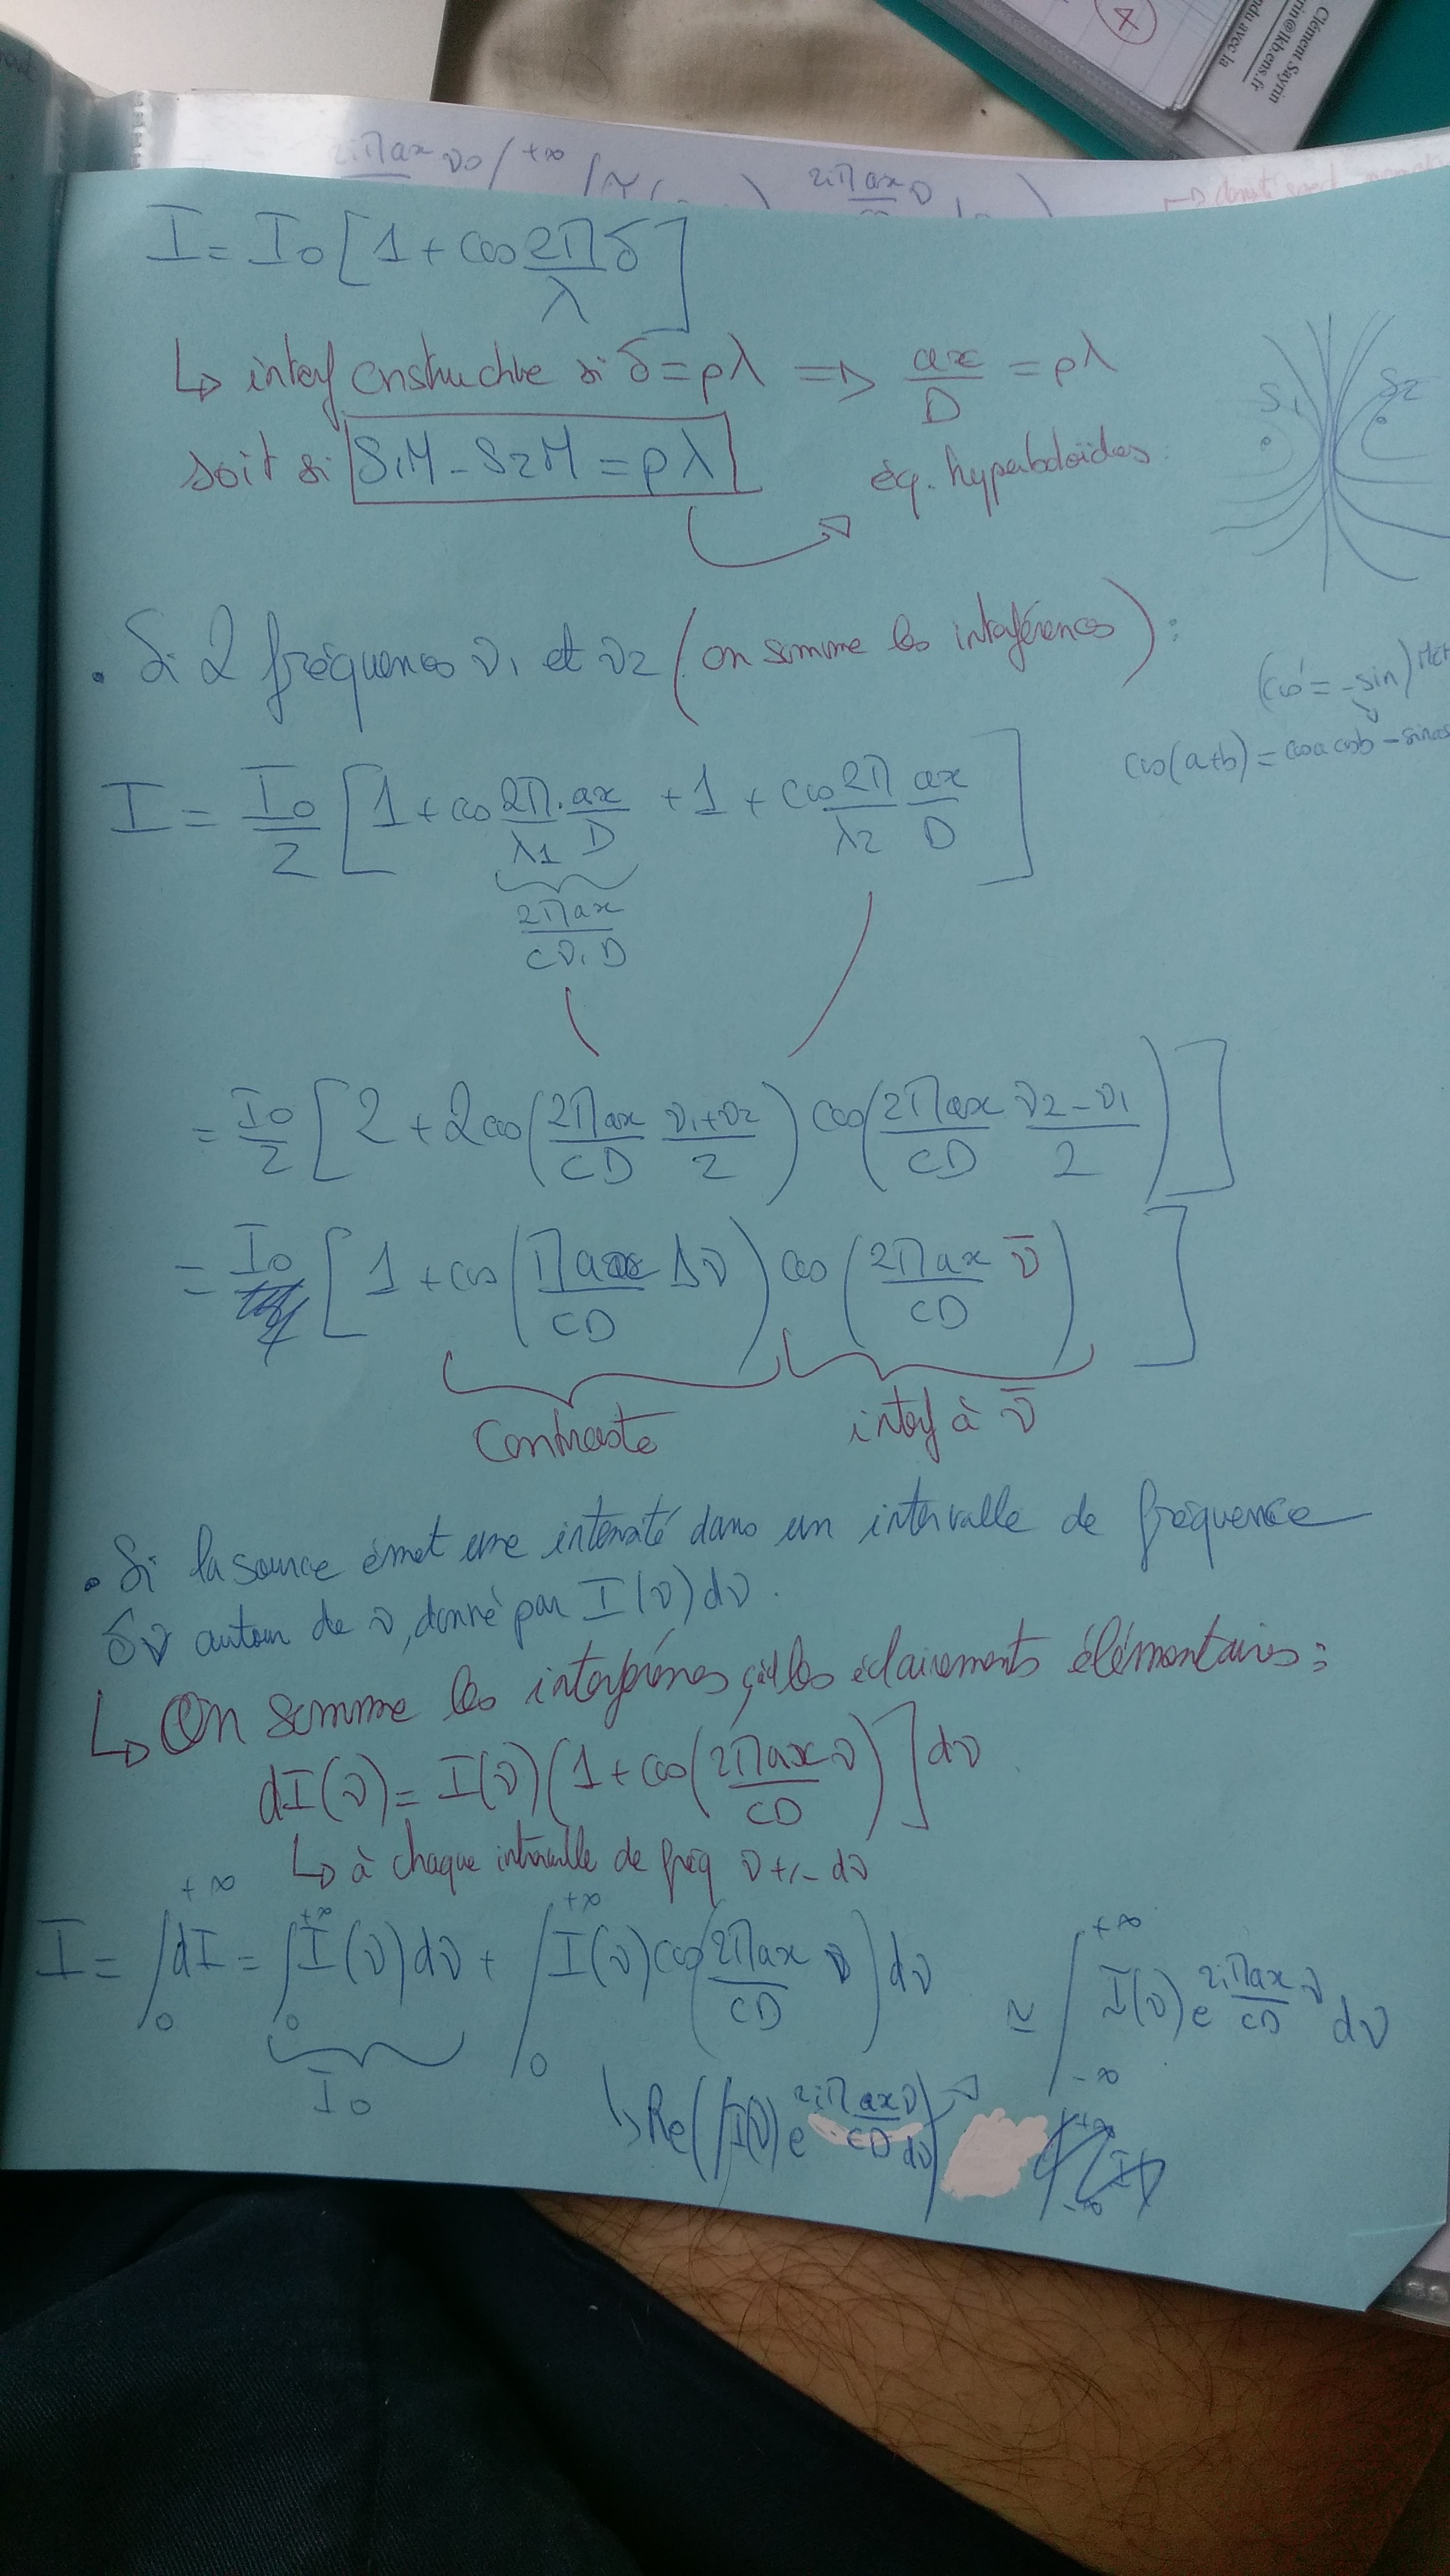 4
Clément Sayrin
rin@lkb.ens.fr
ndu avec la
2iΠax ν0 +∞ 2iΠax ν
I = I0 [1 + cos 2Πδ/λ]
↳ interf constructive si δ = pλ => ax/D = pλ
soit si S1M - S2M = pλ
éq. hyperboloïdes
S1 S2
. Si 2 fréquences ν1 et ν2 (on somme les interférences) :
(cos' = -sin)
cos(a+b) = cosa cosb - sina
I = I0/2 [1 + cos 2Π/λ1 . ax/D + 1 + cos 2Π/λ2 ax/D]
2Πax/cν1D
= I0/2 [2 + 2cos(2Πax/cD ν1+ν2/2) cos(2Πax/cD ν2-ν1/2)]
= I0 [1 + cos(Πax/cD Δν) cos(2Πax/cD ν̄)]
Contraste interf à ν̄
. Si la source émet une intensité dans un intervalle de fréquence
δν autour de ν, donné par I(ν)dν.
↳ On somme les interférences, càd les éclairements élémentaires :
dI(ν) = I(ν)(1 + cos(2Πax/cD ν)]dν
↳ à chaque intervalle de fréq ν +/- dν
I = ∫0+∞ dI = ∫0+∞ I(ν)dν + ∫0+∞ I(ν)cos(2Πax/cD ν)dν ≃ ∫-∞+∞ Ĩ(ν)e 2iΠax/cD ν dν
I0
↳ Re(∫I(ν)e 2iΠaxν/cD dν)